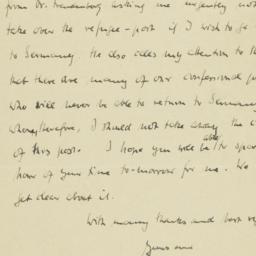 from Dr. Freudenberg asking me urgently not
take over the refugee-post if I wish to go
to Germany. He also calls my attention to th
that there are many of our confessional p
who will never be able to return to Germany
whom, therefore, I should not take away the c
of this post. I hope you will be able to spare
hour of your time to-morrow for me. We
get clear about it.
With many thanks and best re
Yours